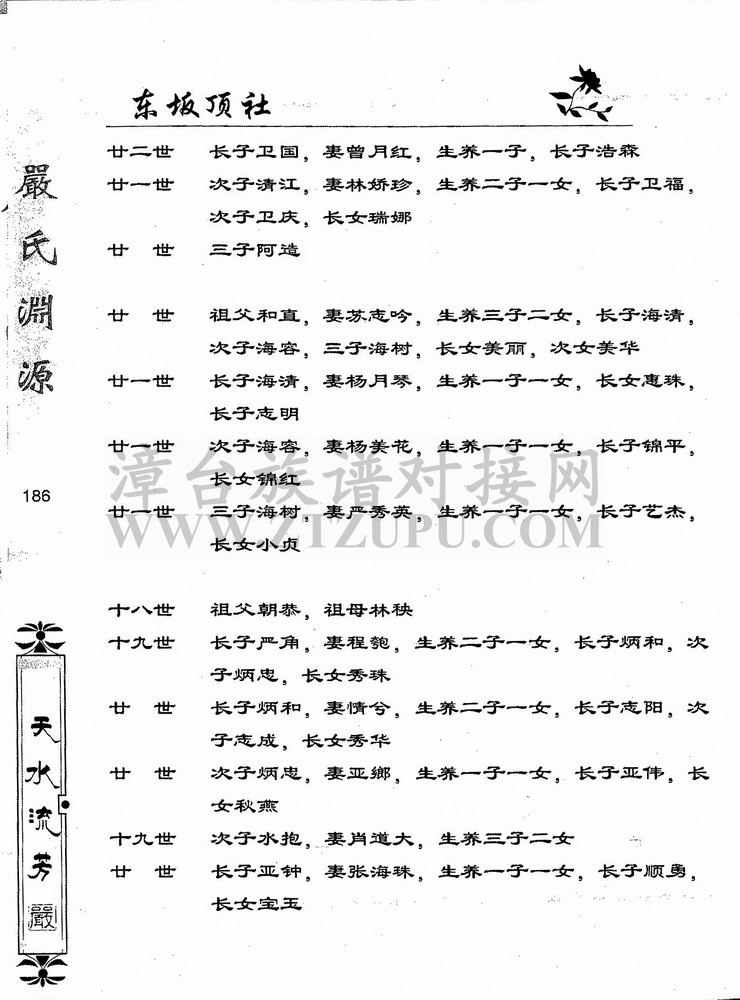 东坂顶社
廿二世 长子卫国，妻曾月红，生养一子，长子浩森
廿一世 次子清江，妻林娇珍，生养二子一女，长子卫福，
次子卫庆，长女瑞娜
廿 世 三子阿造
廿 世 祖父和直，妻苏志吟，生养三子二女，长子海清，
次子海容，三子海树，长女美丽，次女美华
廿一世 长子海清，妻杨月琴，生养一子一女，长女惠珠，
长子志明
廿一世 次子海容，妻杨美花，生养一子一女，长子锦平，
长女锦红
廿一世 三子海树，妻严秀英，生养一子一女，长子艺杰，
长女小贞
十八世 祖父朝恭，祖母林秧
十九世 长子严角，妻程匏，生养二子一女，长子炳和，次
子炳忠，长女秀珠
廿 世 长子炳和，妻情兮，生养二子一女，长子志阳，次
子志成，长女秀华
廿 世 次子炳忠，妻亚鄉，生养一子一女，长子亚伟，长
女秋燕
十九世 次子水抱，妻肖道大，生养三子二女
廿 世 长子亚钟，妻张海珠，生养一子一女，长子顺勇，
长女宝玉
嚴氏淵源
186
天水流芳
嚴
漳台族谱对接网
WWW.ZTZUPU.COM